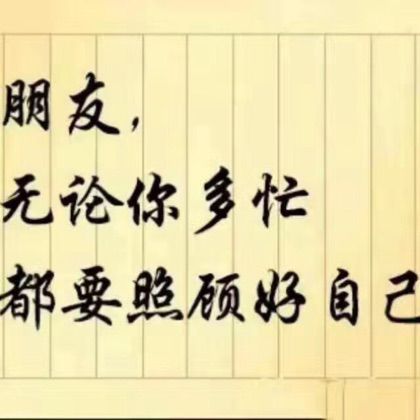 朋友，
无论你多忙
都要照顾好自己